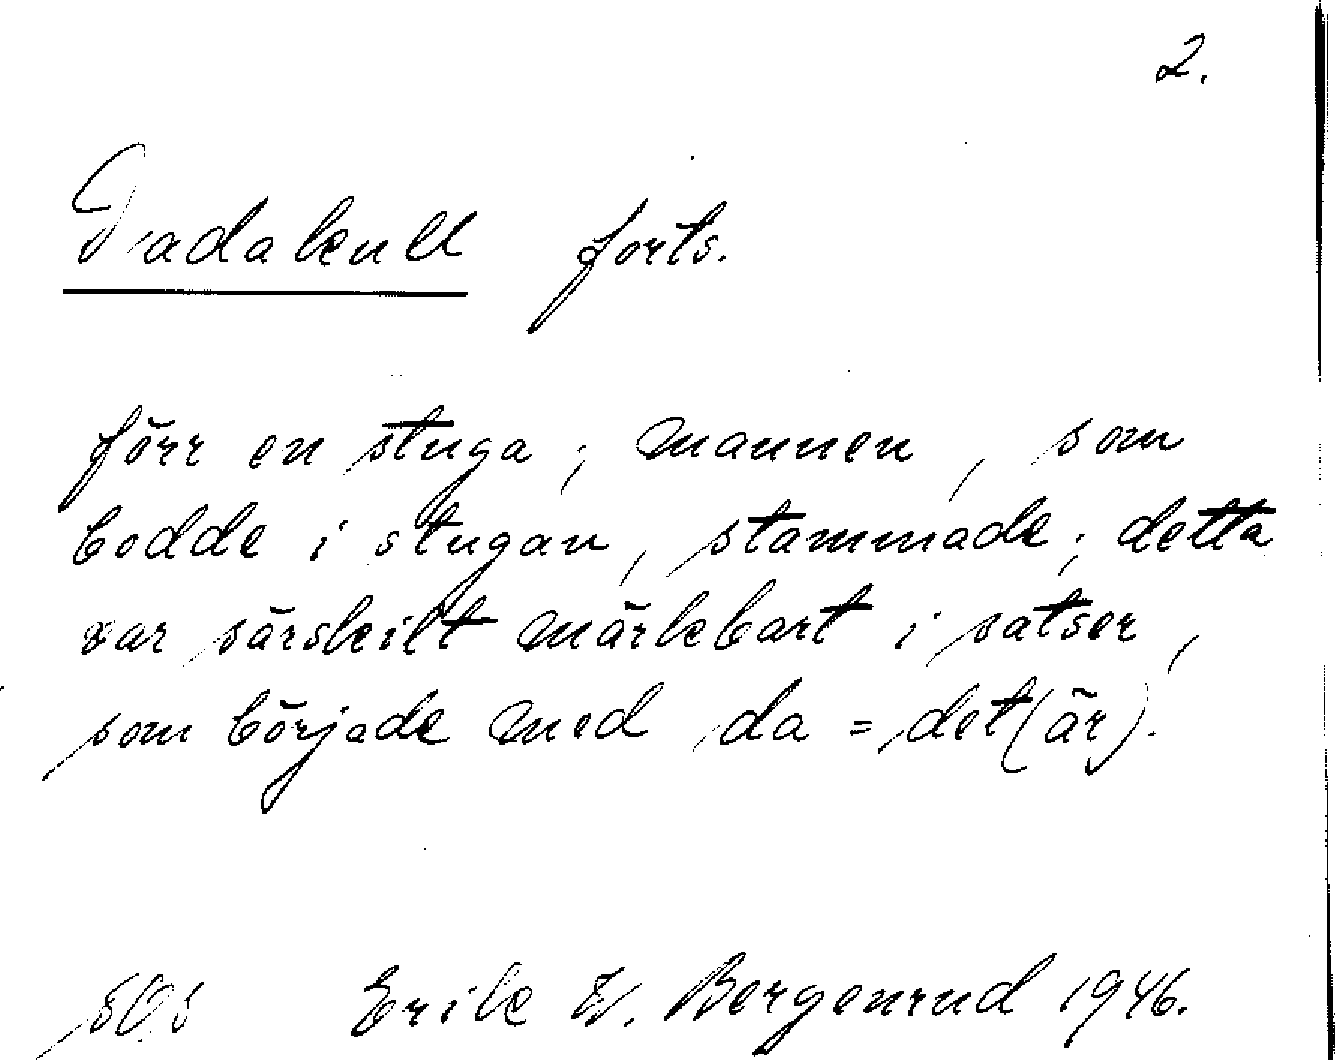 2.
Dadakull forts.
förr en stuga; mannen, som
bodde i stugan, stammade; detta
var särskilt märkbart i satser,
som började med da = det (är).
Erik W. Bergenrud 1946.